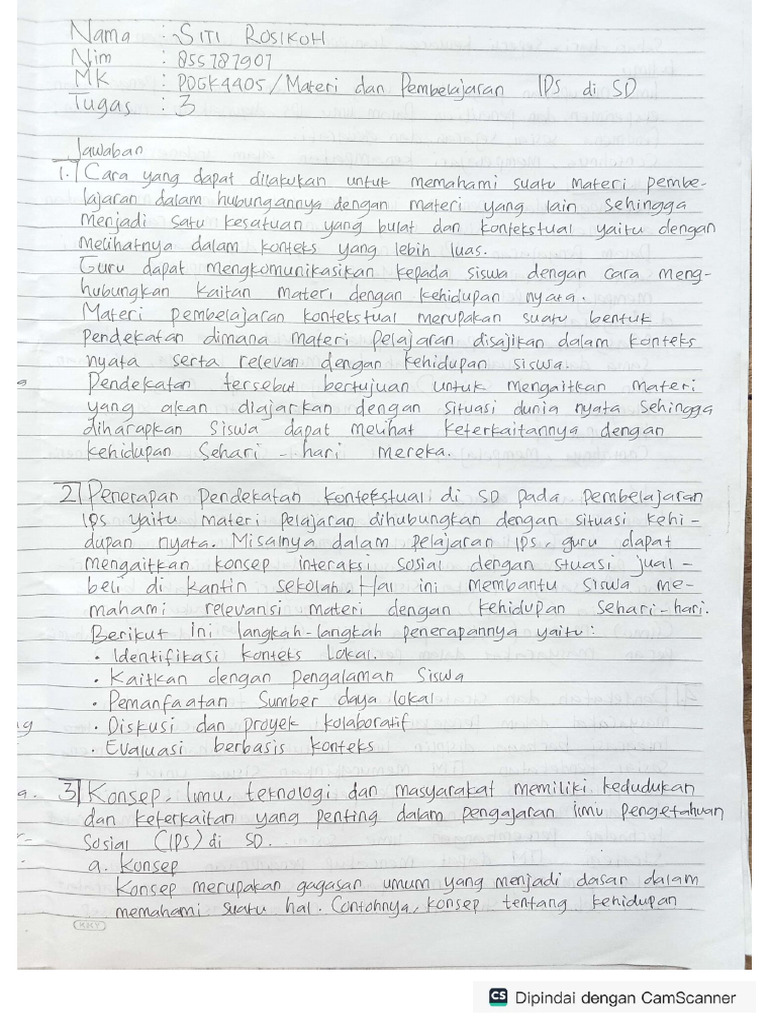 Nama : SITI ROSIKOH
Nim : 855787907
MK : PDGK4405/Materi dan Pembelajaran IPS di SD
Tugas : 3
Jawaban
1. Cara yang dapat dilakukan untuk memahami suatu materi pembe-
lajaran dalam hubungannya dengan materi yang lain sehingga
menjadi satu kesatuan yang bulat dan kontekstual yaitu dengan
melihatnya dalam konteks yang lebih luas.
Guru dapat mengkomunikasikan kepada siswa dengan cara meng-
hubungkan kaitan materi dengan kehidupan nyata.
Materi pembelajaran kontekstual merupakan suatu bentuk
pendekatan dimana materi pelajaran disajikan dalam konteks
nyata serta relevan dengan kehidupan siswa.
Pendekatan tersebut bertujuan untuk mengaitkan materi
yang akan diajarkan dengan situasi dunia nyata sehingga
diharapkan siswa dapat melihat keterkaitannya dengan
kehidupan sehari-hari mereka.
2. Penerapan pendekatan kontekstual di SD pada pembelajaran
IPS yaitu materi pelajaran dihubungkan dengan situasi kehi-
dupan nyata. Misalnya dalam pelajaran IPS, guru dapat
mengaitkan konsep interaksi sosial dengan stuasi jual-
beli di kantin sekolah. Hal ini membantu siswa me-
mahami relevansi materi dengan kehidupan sehari-hari.
Berikut ini langkah-langkah penerapannya yaitu:
• Identifikasi konteks Lokal.
• Kaitkan dengan pengalaman siswa
• Pemanfaatan Sumber daya lokal
• Diskusi dan proyek kolaboratif
• Evaluasi berbasis konteks
3. Konsep, Ilmu, teknologi dan masyarakat memiliki kedudukan
dan keterkaitan yang penting dalam pengajaran ilmu pengetahuan
Sosial (IPS) di SD.
a. Konsep
Konsep merupakan gagasan umum yang menjadi dasar dalam
memahami suatu hal. Contohnya, konsep tentang kehidupan
CS Dipindai dengan CamScanner